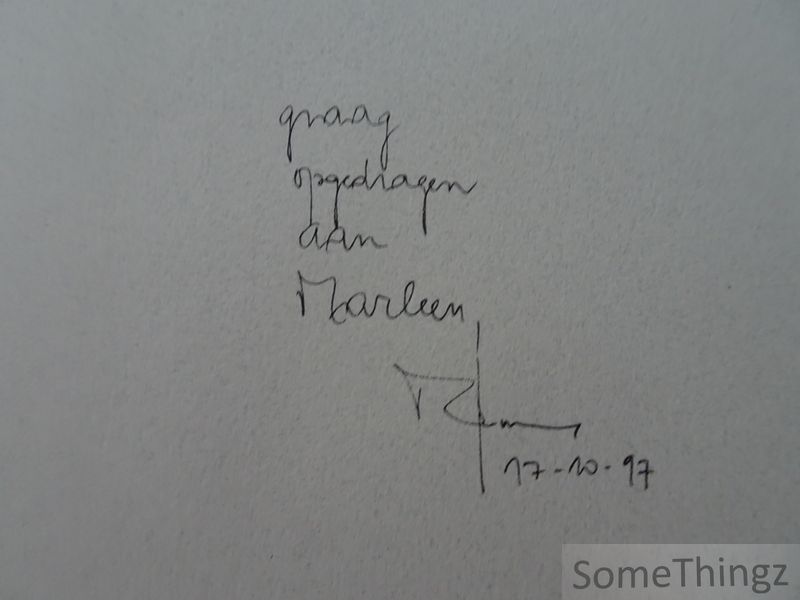 graag
opgedragen
aan
Marleen
17-10-97
SomeThingz